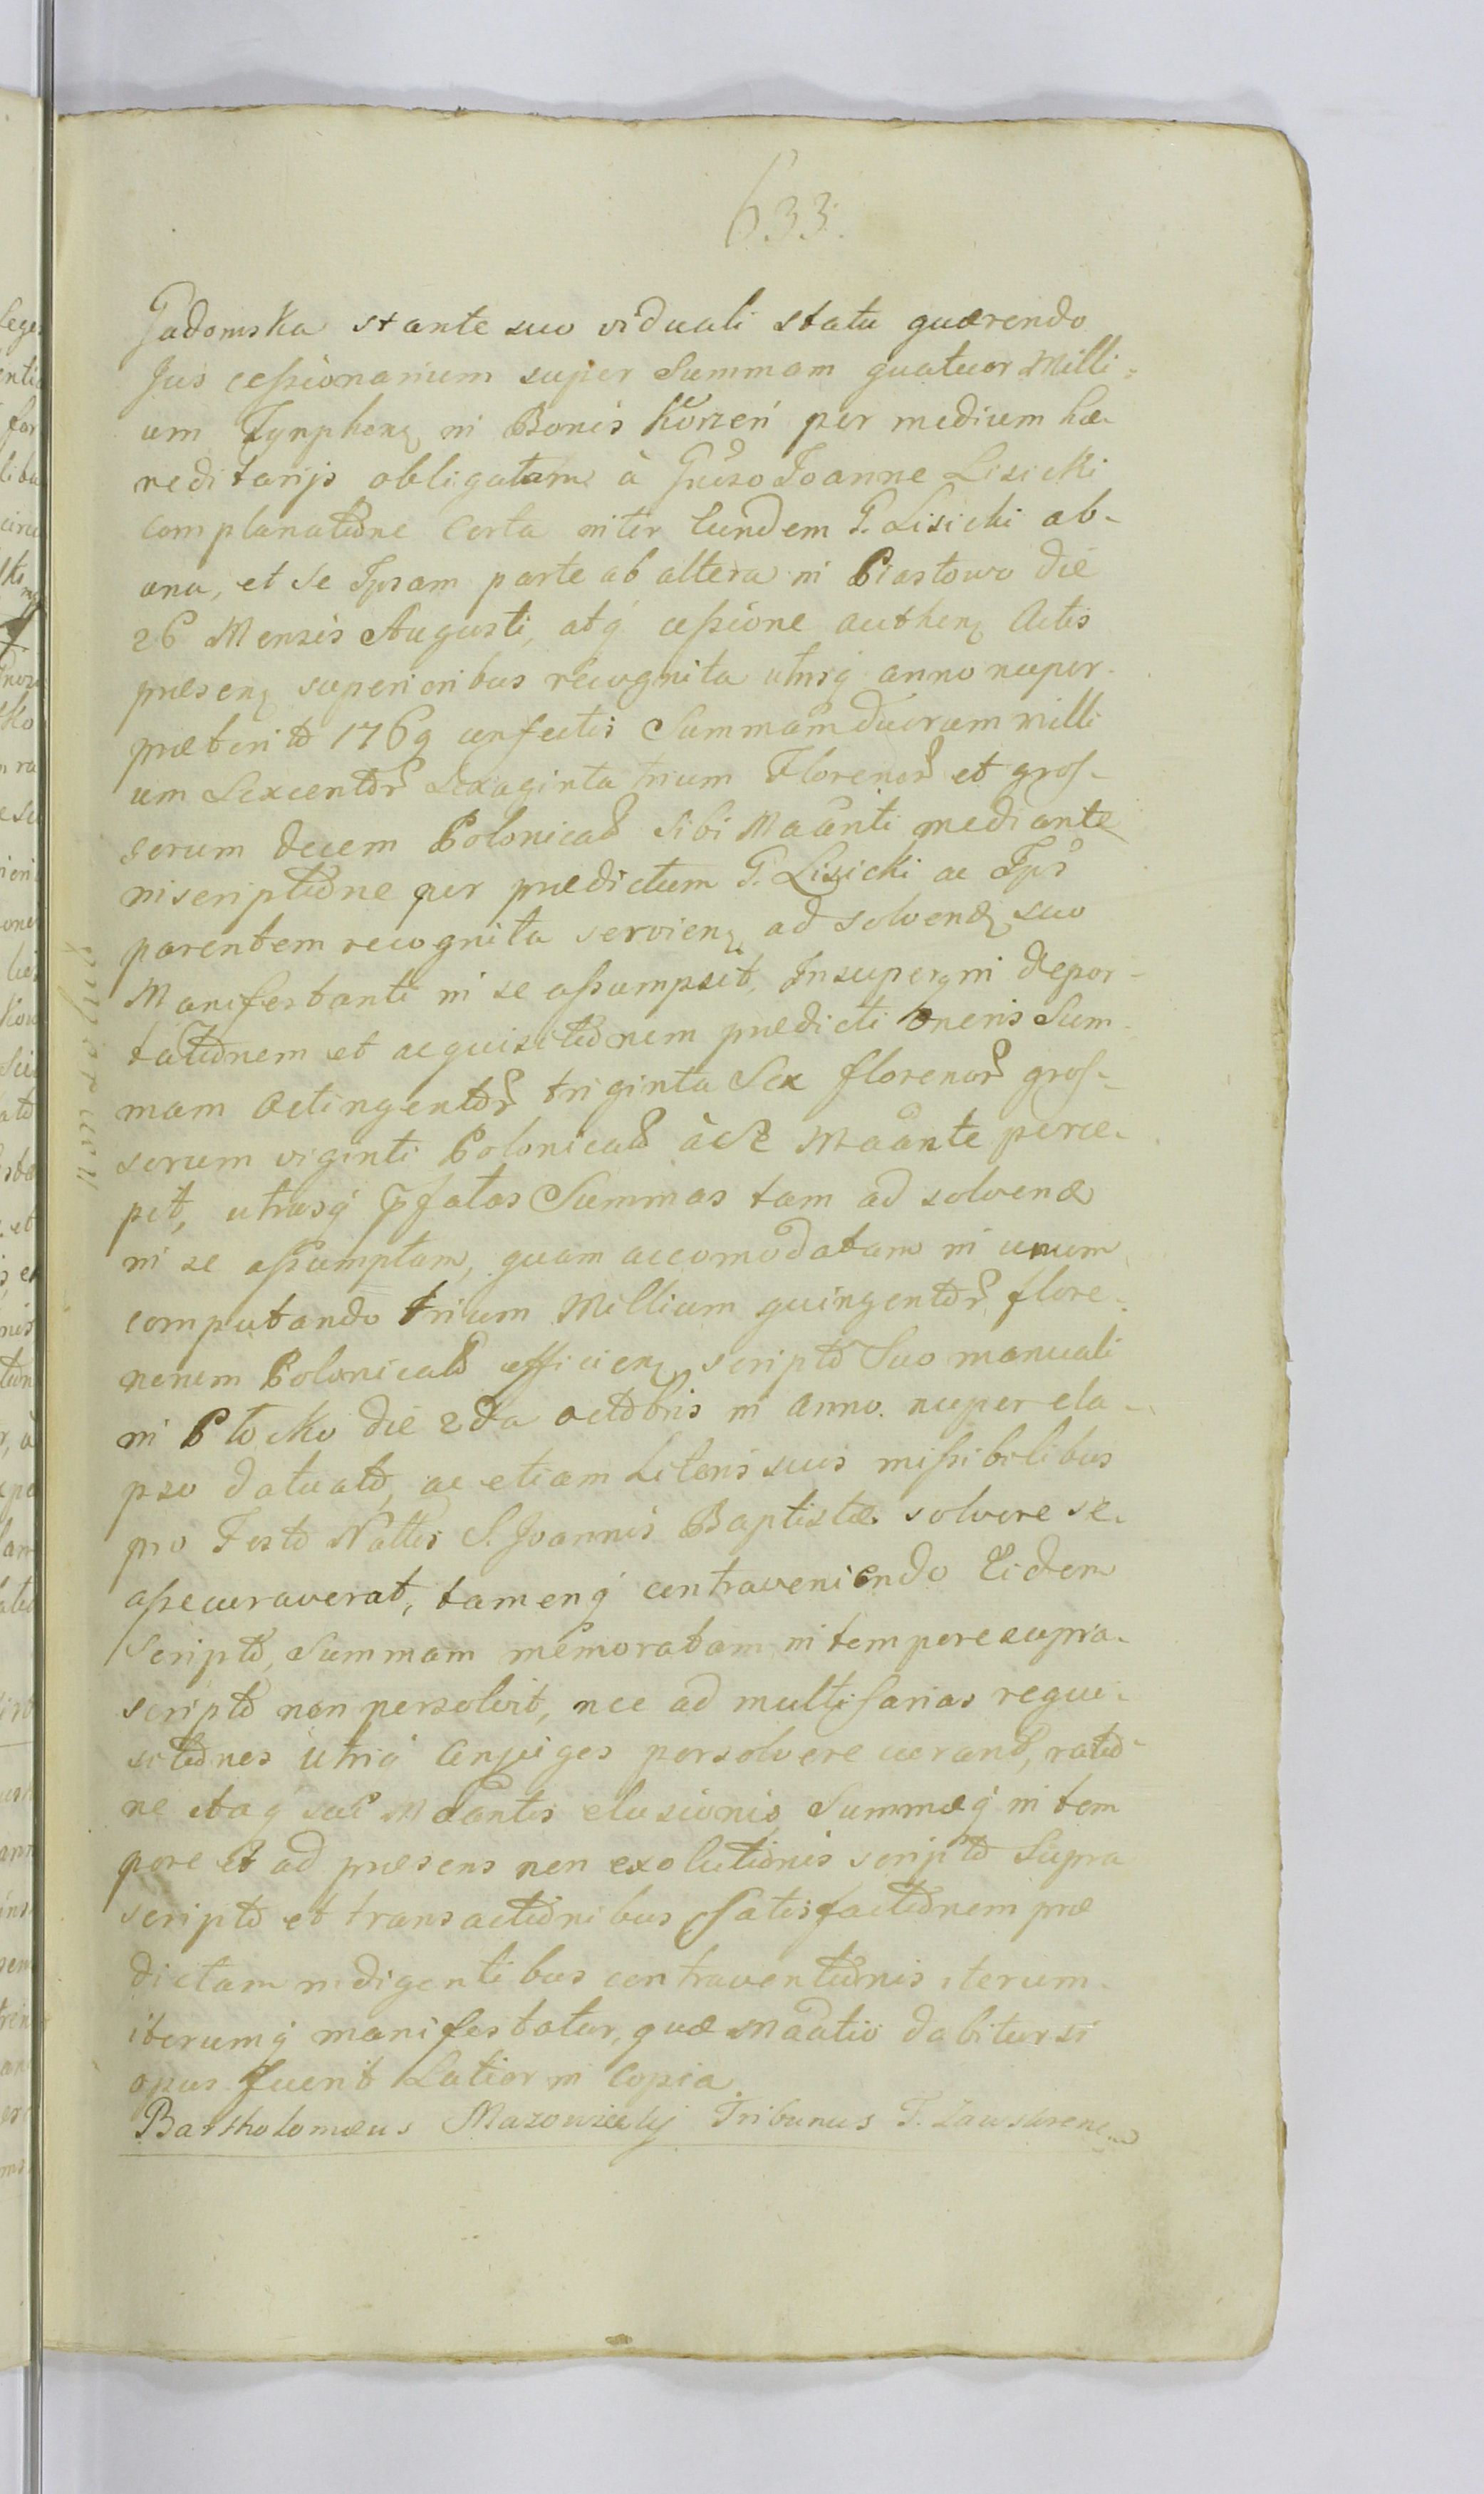 633.
Gadomska stante suo viduali statu quærendo
Jus ceſsionarium super Summam quatuor Milli=
um Tynphonꝝ in Bonis Korzeń per medium hæ-
reditarijs obligatam à Gñso Joanne Lisicki
complanatione certa inter Eundem G. Lisicki ab-
una, et se Ipsam parte ab altera in Piastowo die
26 Mensis Augusti, atq́ ceſsione authenꝝ Actis
præsenꝝ superioribus recognita utrisq́ anno nuper-
præterito 1769 confectis Summam duorum milli
um Sexcentor̃ Sexaginta trium Florenor̃ et groſ-
sorum decem Polonical̃ sibi Mãnti mediante
inscriptione per prædictum G. Lisicki ac Ips̃
parentem recognita servienꝝ ad solvenꝝ suo
Manifestanti in se aſsumpsit, Insuperq́ in depor-
tationem et acquisitionem prædicti oneris Sum-
mam Octingentor̃ triginta Sex florenor̃ groſ-
sorum viginti Polonical̃ à se Mãnte perce-
pit, utrasq́ p̃fatas Summas tam ad solvend
in se aſsumptam, quam accomodatam in unum
computando trium Millium quingentor̃ flore-
norum Polonical̃ efficienꝝ scripto Suo manuali
in Płocko die 2da octobris in anno nuper ela-
pso datuato, ac etiam Literis suis miſsibilibus
pro Festo Nattis S. Joannis Baptistæ solvere se
aſsecuraverat, tamenq́ contraveniendo Eidem
Scripto, Summam memoratam in tempore supra-
scripto non persolvit, nec ad multifarias requi-
sitiones utriq́ Conjuges persolvere curant, ratio-
ne itaq́ sui Mãntis elusionis Summæq́ in tem
pore et ad præsens non exolutionis scripto Supra
scripto et transactionibus Satisfactionem præ
dictam indigentibus contraventionis iterum-
iterumq́ manifestatur, quæ Mãtio dabitur si
opus fuerit Latior in Copia.
Bartholomæus Mazowiecky Tribunus T. Zawskrenꝝ